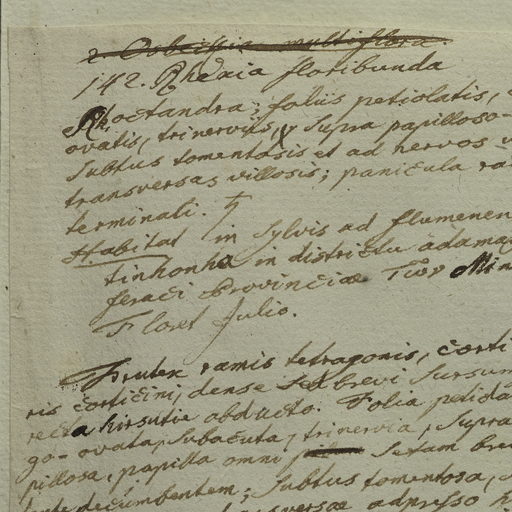 2. Osbeckia multiflora.
142. Rhexia floribunda
Rh. octandra; foliis petiolatis,
ovatis, trinerviis, supra papilloso-
subtus tomentosis et ad nervos
transversas villosis; panicula ra
terminali.
Habitat in sylvis ad flumenen
tinhonha in districtu adama
feraci Provinciae Min
Floret Julio.
Frutex ramis tetragonis, corti
ris corticini, dense sed brevi sursum
recta hirsutie obducto. Folia petiola
go-ovata, subacuta, trinervia, supra
pillosa, papilla omni setam brev
decumbentem; subtus tomentosa,
adpresso h